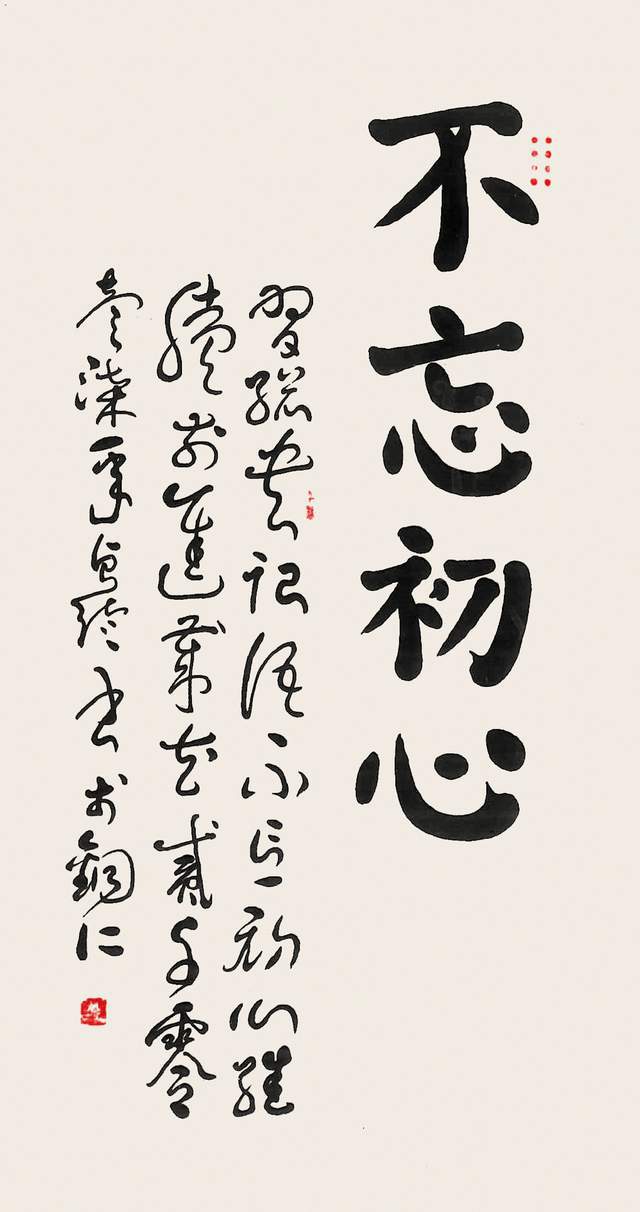 不忘初心
習總書記語不忘初心繼
續前進歲在貳千零
壹柒年書於銅仁